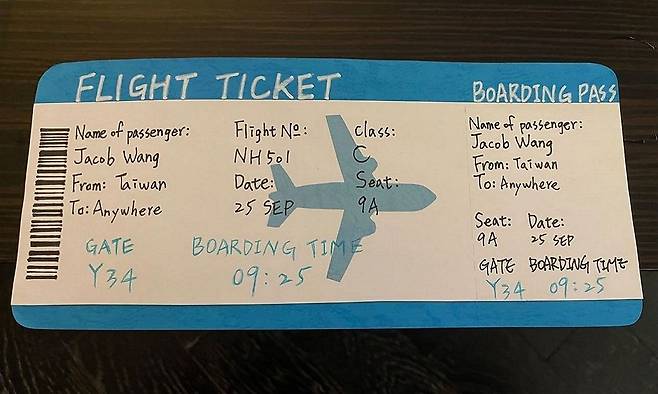 FLIGHT TICKET
Name of passenger:
Jacob Wang
From: Taiwan
To: Anywhere
Flight No:
NH501
Date:
25 SEP
Class:
C
Seat:
9A
GATE
Y34
BOARDING TIME
09:25
BOARDING PASS
Name of passenger:
Jacob Wang
From: Taiwan
To: Anywhere
Seat: Date:
9A 25 SEP
GATE BOARDING TIME
Y34 09:25